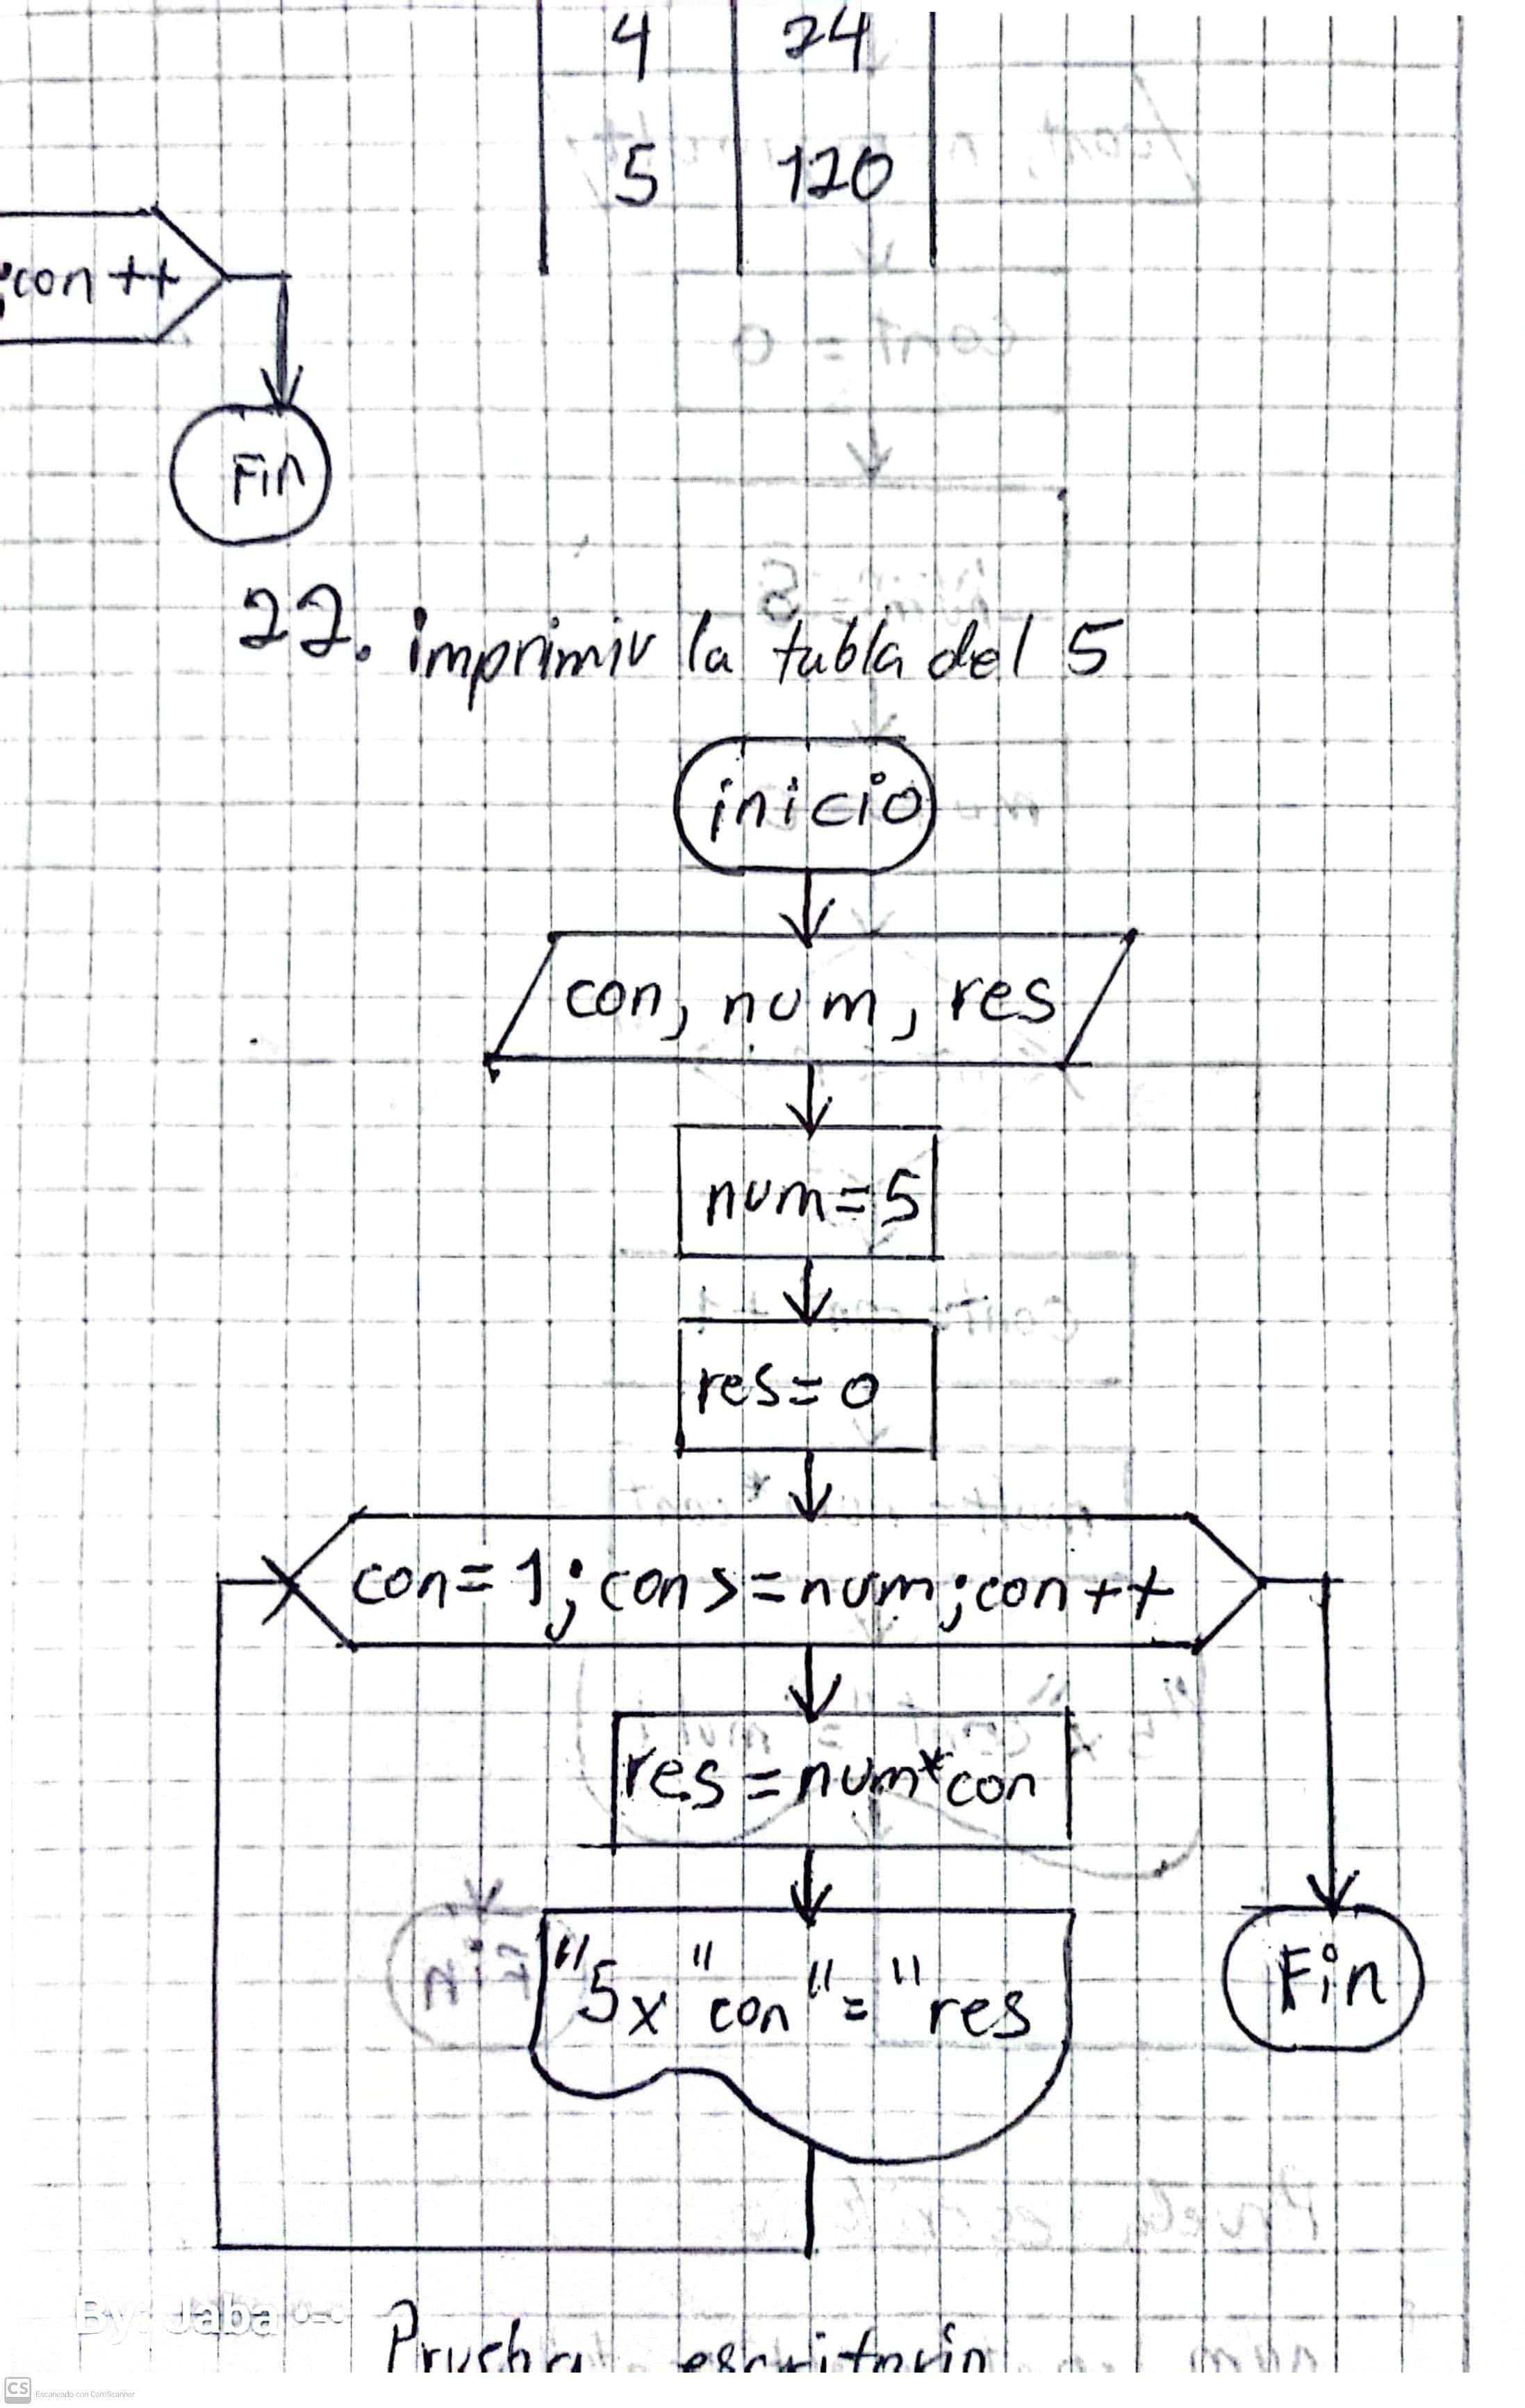 4 24
5 120
;con++
Fin
22. imprimir la tabla del 5
inicio
con, num, res
num=5
res=0
con=1;con>=num;con++
res=num*con
"5x"con"="res
Fin
By: Jaba
Prueba escritorio
CS Escaneado con CamScanner